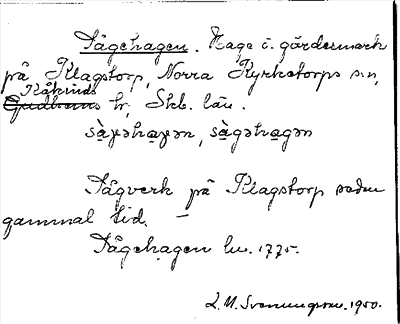 Sågehagen. Hage i gärdesmark
på Klagstorp, Norra Kyrketorps s:n,
Kåkinds
Gudhems hr, Skb. län.
sàgəhagən, sàgəhagən
Sågverk på Klagstorp sedan
gammal tid. –
Sågehagen lm. 1775.
L. M. Svenungsson. 1950.